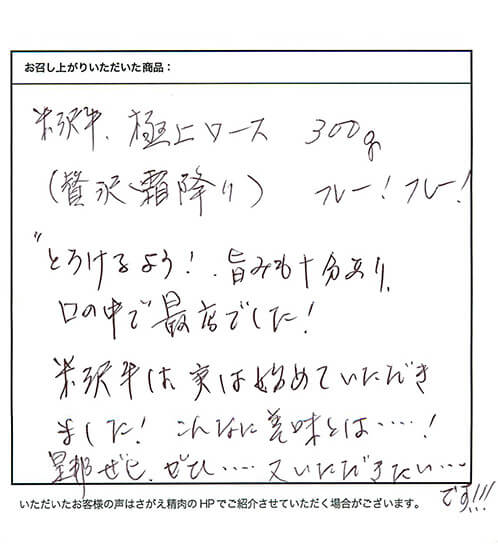 お召し上がりいただいた商品：
米沢牛.極上ロース 300g
(贅沢霜降り) フレー!フレー!
"とろけるよう!.旨みも十分あり、
口の中で最高でした!
米沢牛は実は始めていただき
ました! こんなに美味とは……!
是非ぜひ、ぜひ……又いただきたい…
です!!!
いただいたお客様の声はさがえ精肉のHPでご紹介させていただく場合がございます。